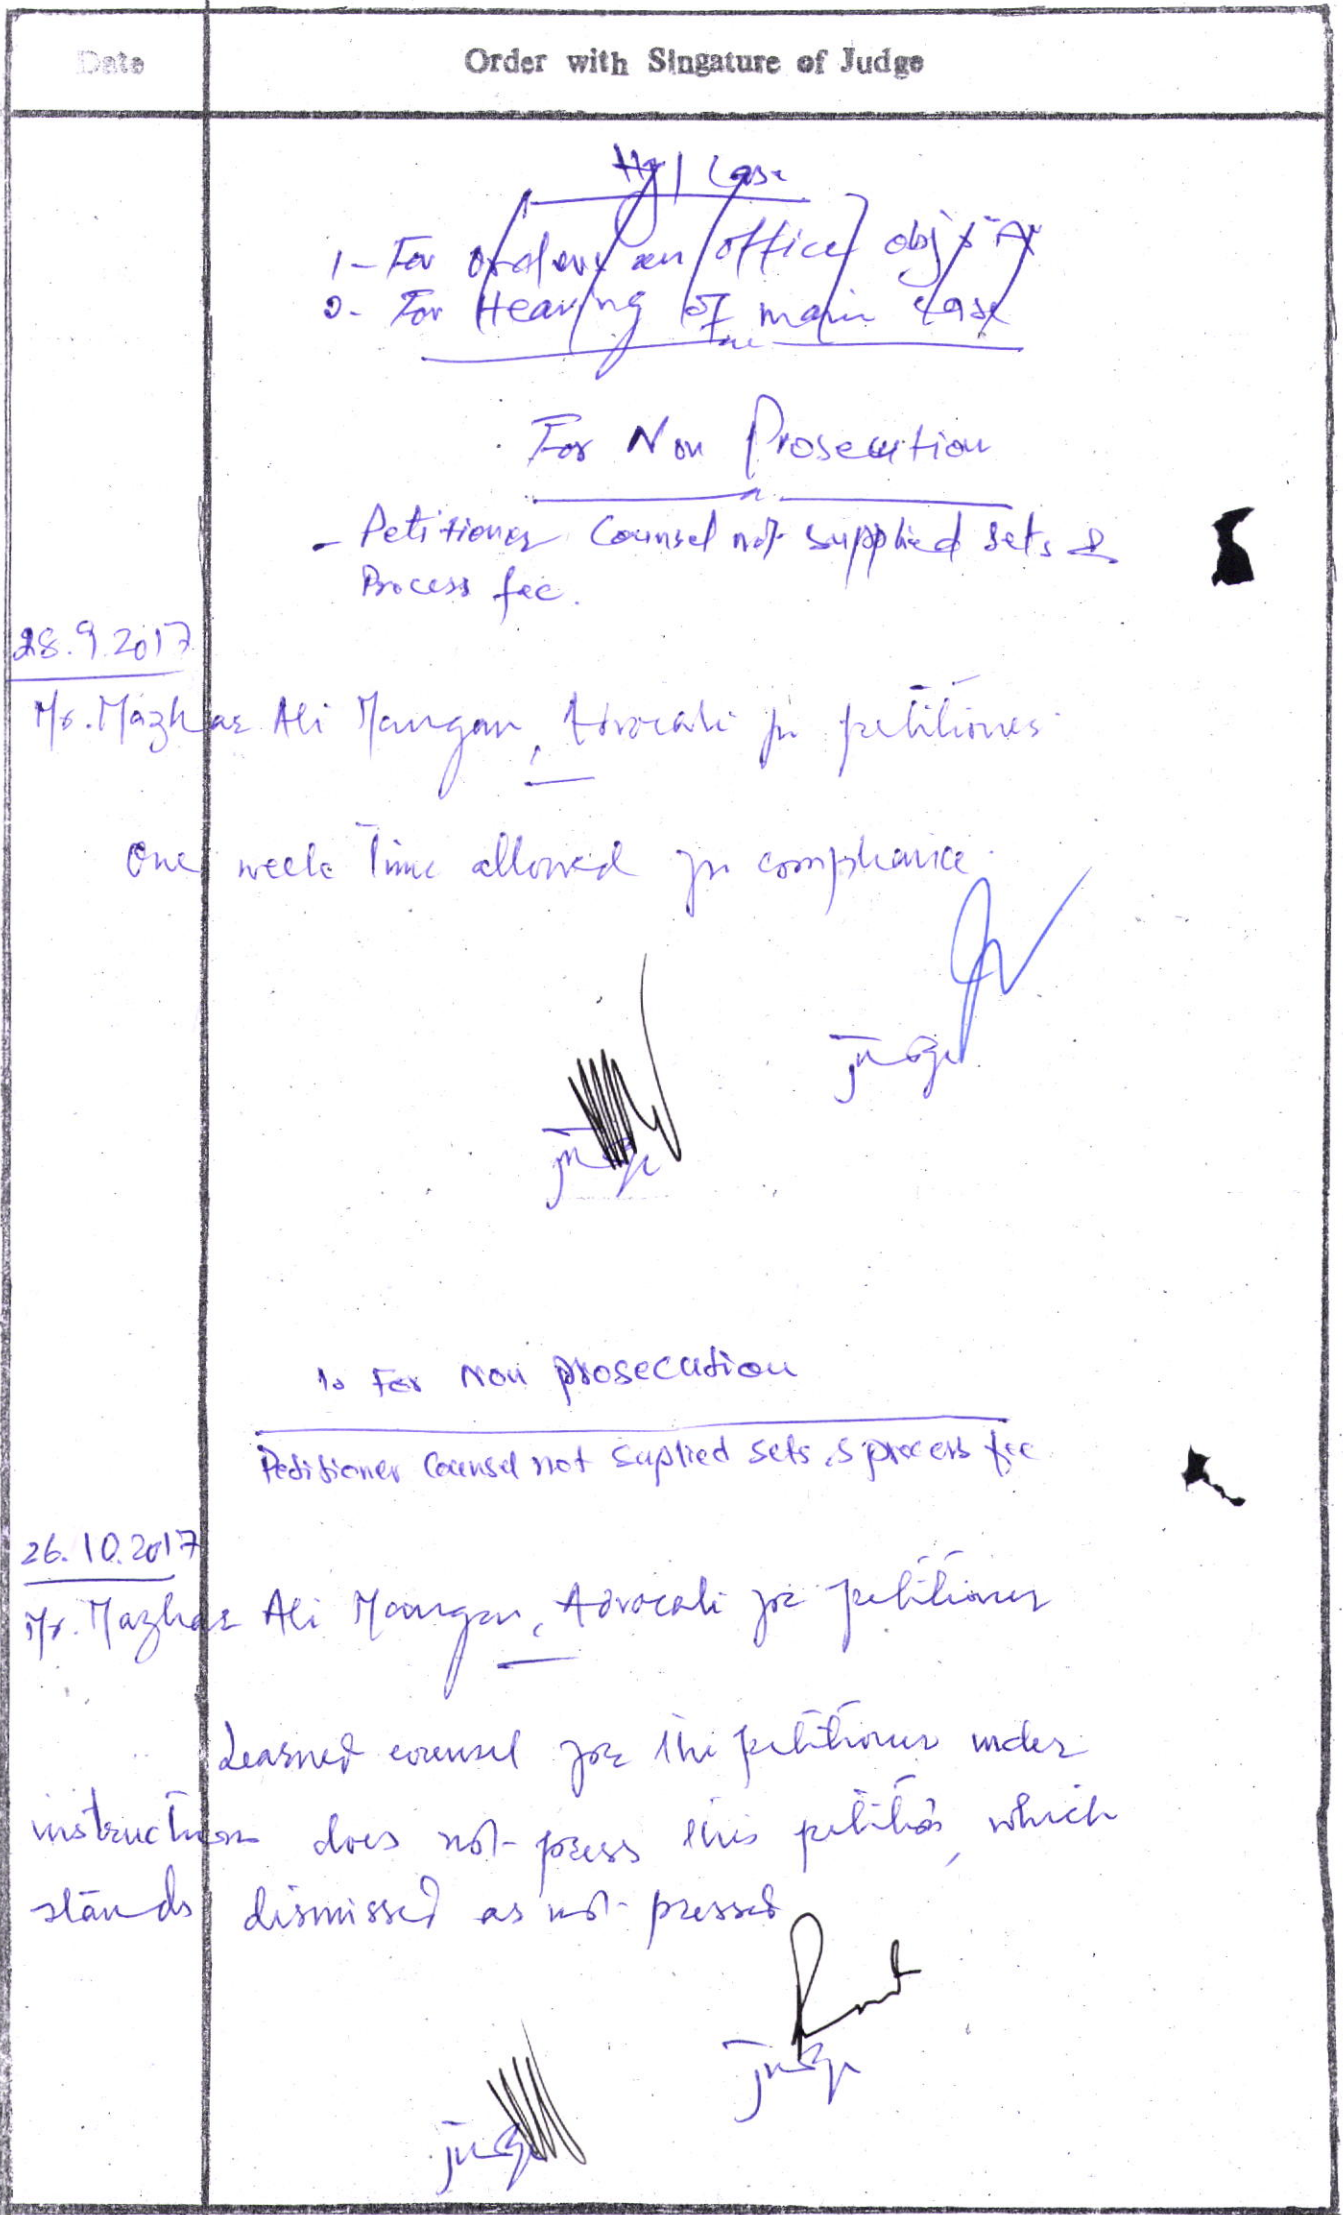 Date Order with Singature of Judge
Hg / Case
1- For orders on office obj: "A"
2- For Hearing of main case
For Non Prosecution
- Petitioner Counsel not supplied sets &
Process fee.
28.9.2017
Mr. Mazhar Ali Mangan, Advocate for petitioner.
One week time allowed for compliance.
Judge
Judge
1. For Non prosecution
Petitioner Counsel not Suplied sets & process fee
26.10.2017
Mr. Mazhar Ali Mangan, Advocate for petitioner
Learned counsel for the petitioner under
instructions does not press this petition, which
stands dismissed as not pressed
Judge
Judge